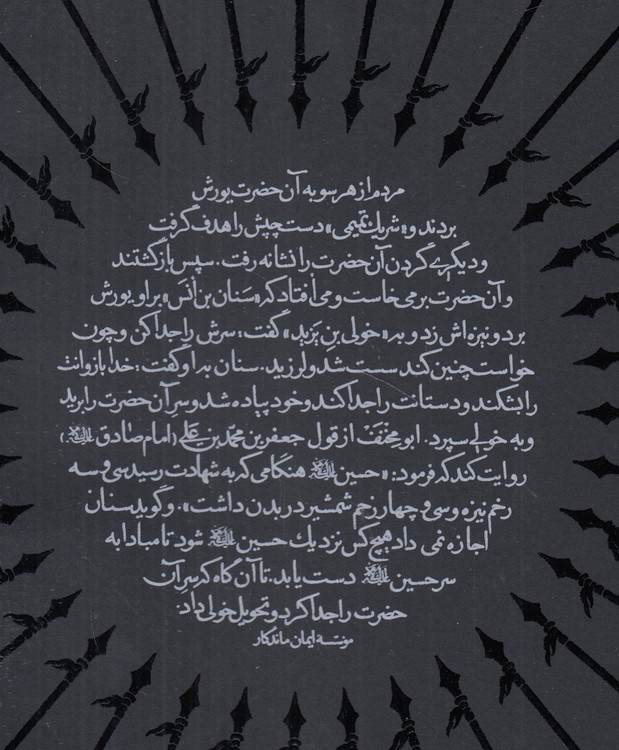 مردم از هر سو به آن حضرت یورش
بردند و «شریك تمیمی» دست چپش را هدف گرفت
و دیگری گردن آن حضرت را نشانه رفت. سپس بازگشتند
و آن حضرت برمی‌خاست و می‌افتاد که «سَنان بن اَنَس» بر او یورش
برد و نیزه‌اش زد و به «خولی بن یَزید» گفت: سرش را جدا کن و چون
خواست چنین کند سست شد و لرزید. سنان به او گفت: خدا بازوانت
را بشکند و دستانت را جدا کند و خود پیاده شد و سر آن حضرت را برید
و به خولی سپرد. ابو مخنَف از قول جعفر بن محمّد بن علی (امام صادق علیه‌السلام)
روایت کند که فرمود: «حسین علیه‌السلام هنگامی که به شهادت رسید سی و سه
زخم نیزه و سی و چهار زخم شمشیر در بدن داشت». و گوید سنان
اجازه نمی داد هیچ کس نزدیك حسین علیه‌السلام شود تا مبادا به
سر حسین علیه‌السلام دست یابد. تا آن گاه که سر آن
حضرت را جدا کرد و تحویل خولی داد.
موسسه ایمان ماندگار